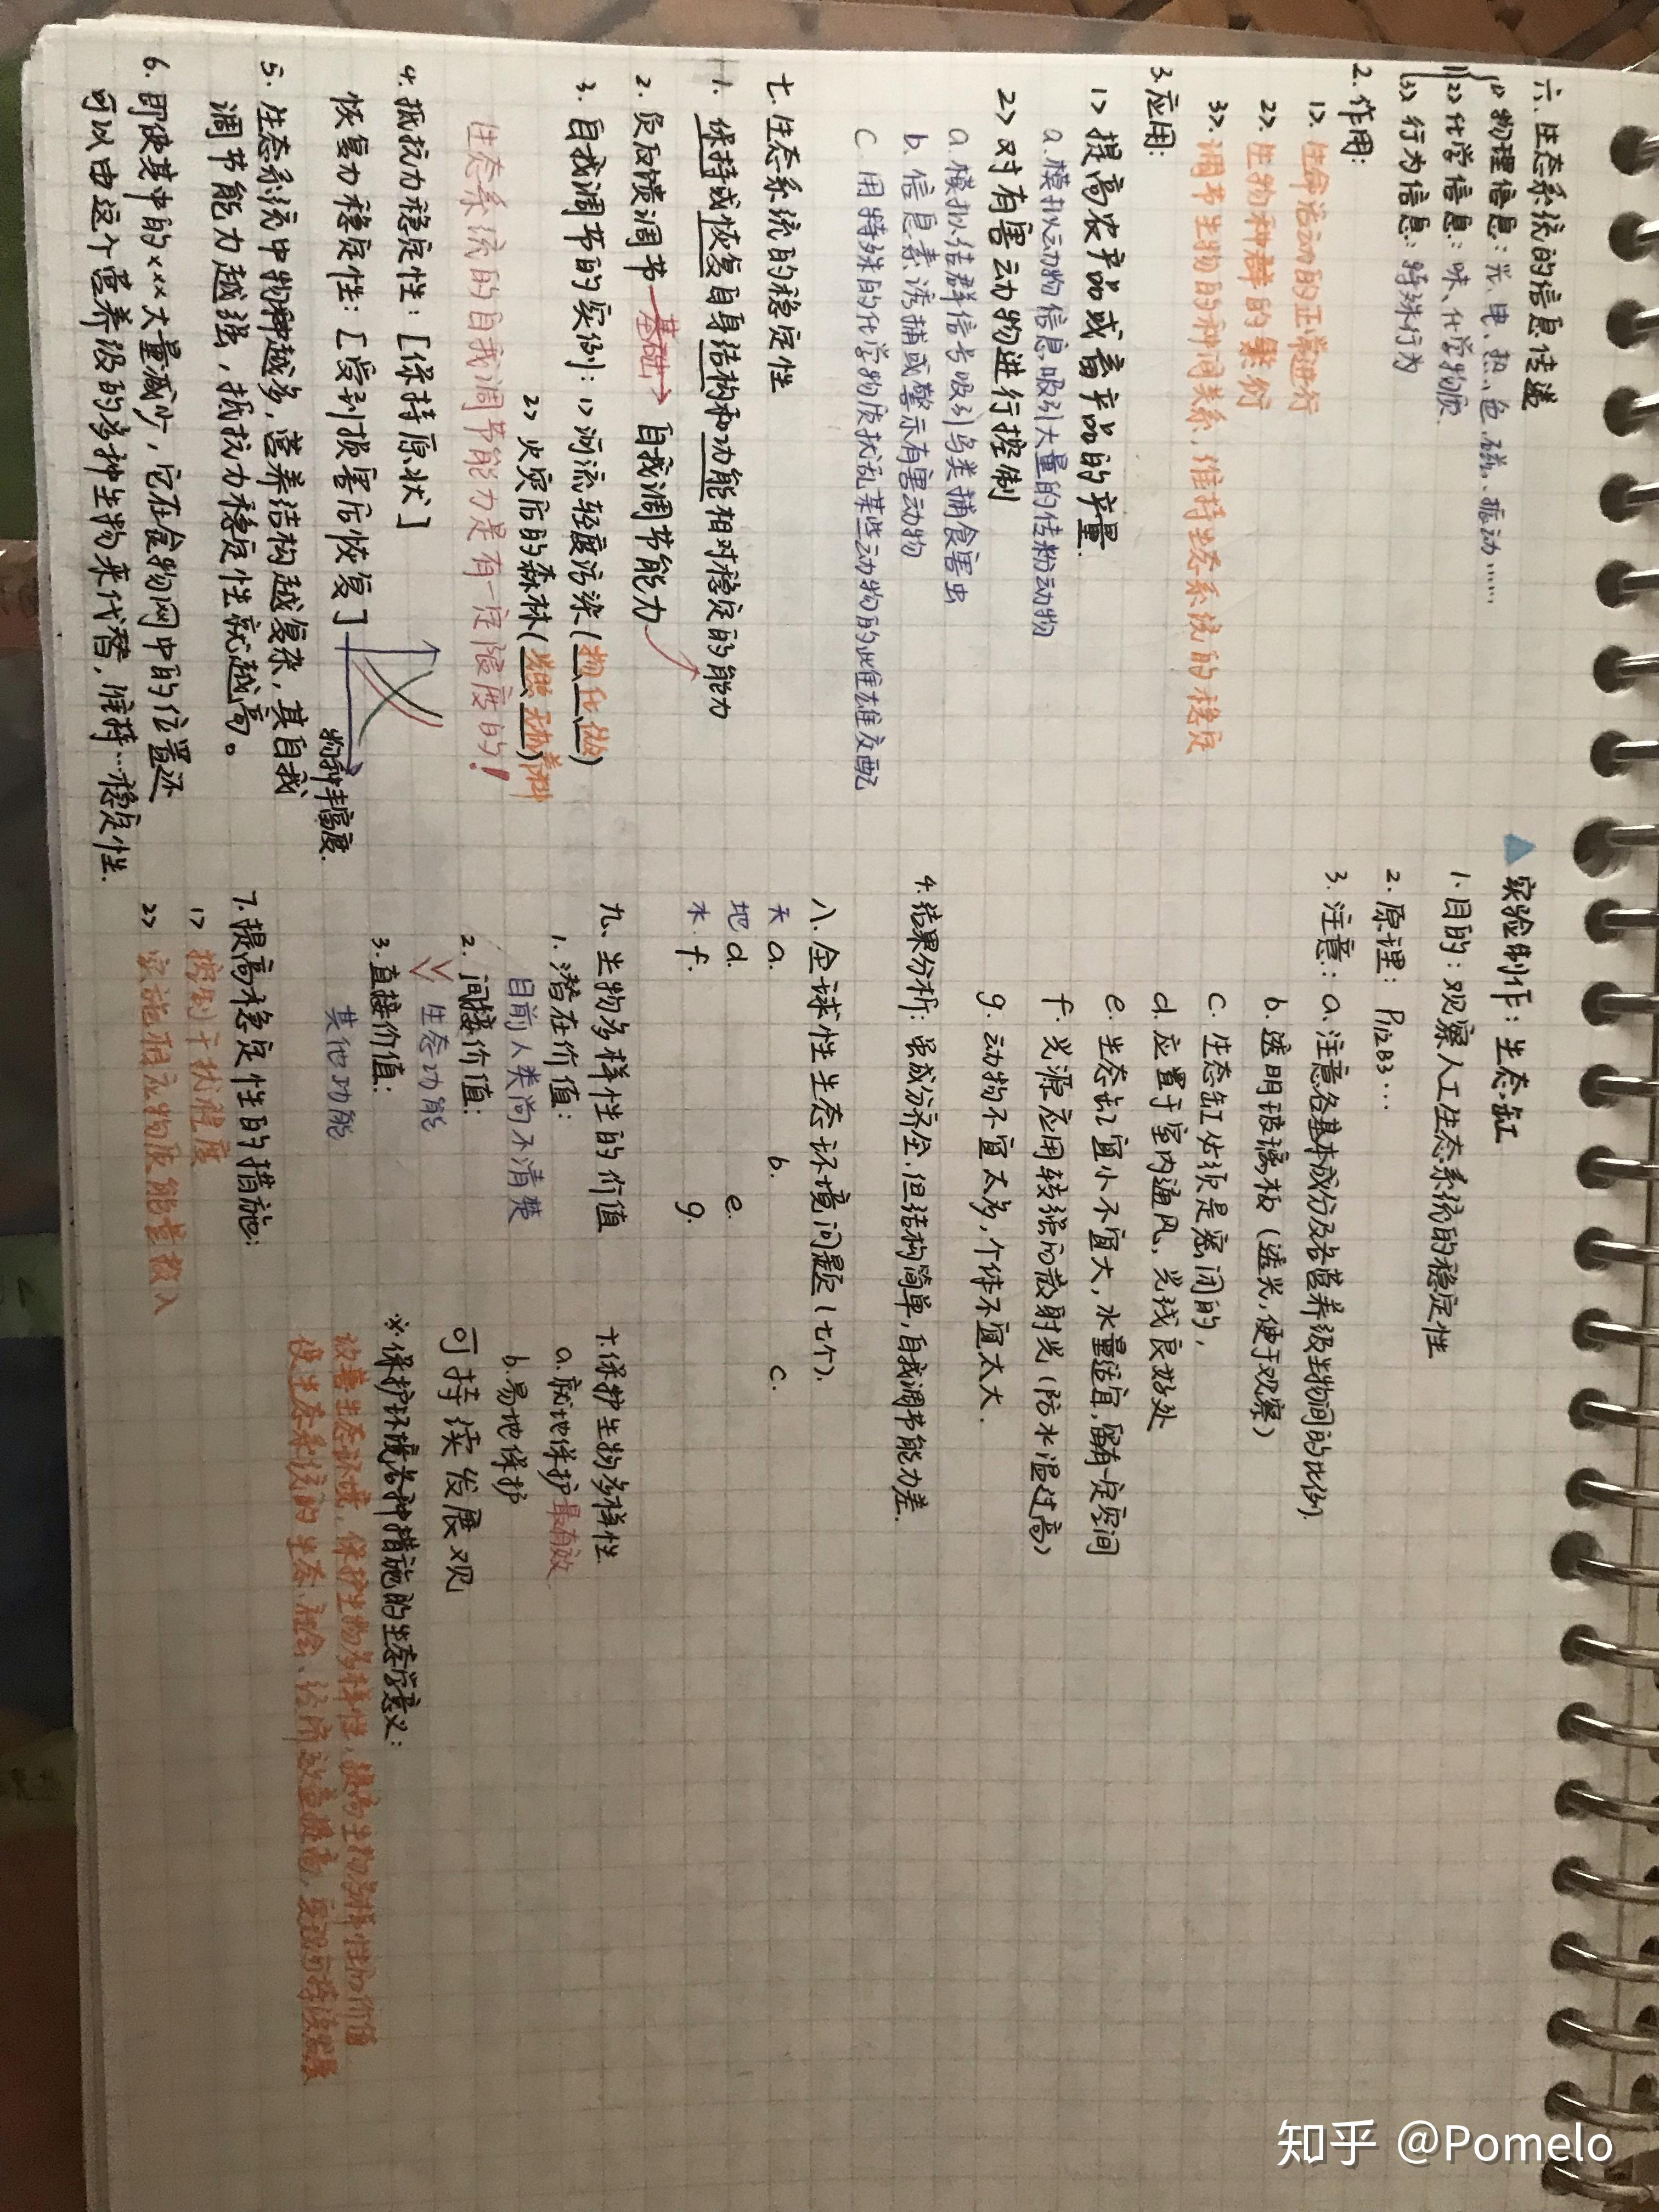 六、生态系统的信息传递
1. 1) 物理信息：光、电、热、色、磁、振动……
2) 化学信息：味、化学物质
3) 行为信息：特殊行为
2. 作用：
1). 生命活动的正常进行
2). 生物种群的繁衍
3). 调节生物的种间关系，维持生态系统的稳定
3. 应用：
1) 提高农产品或畜产品的产量.
a. 模拟动物信息吸引大量的传粉动物
2) 对有害动物进行控制
a. 模拟结群信号吸引鸟类捕食害虫
b. 信息素诱捕或警示有害动物
c 用特殊的化学物质扰乱某些动物的雌雄交配
七. 生态系统的稳定性
1. 保持或恢复自身结构和功能相对稳定的能力
2. 负反馈调节 基础→ 自我调节能力
3. 自我调节的实例：1) 河流轻度污染(物、化、微)
2) 火灾后的森林(光照、无机养料)
生态系统的自我调节能力是有一定限度的！
4. 抵抗力稳定性：[保持原状]
恢复力稳定性：[受到损害后恢复]
物种丰富度.
5. 生态系统中物种越多，营养结构越复杂，其自我
调节能力越强，抵抗力稳定性就越高。
6. 即使其中的xxx大量减少，它在食物网中的位置还
可以由这个营养级的多种生物来代替，维持…稳定性.
实验制作：生态缸
1. 目的：观察人工生态系统的稳定性
2. 原理：P128 B3…
3. 注意：a. 注意各基本成分及各营养级生物间的比例
b. 透明玻璃板（透光，便于观察）
c. 生态缸必须是密闭的，
d. 应置于室内通风、光线良好处
e. 生态缸宜小不宜大，水量适宜，留有一定空间
f. 光源应用较强的散射光（防水温过高）
g. 动物不宜太多，个体不宜太大.
4. 结果分析：虽成分齐全，但结构简单，自我调节能力差.
八、全球性生态环境问题（七个）.
天 a. b. c.
地 d. e.
水. f. g.
九、生物多样性的价值
1. 潜在价值：
目前人类尚不清楚
2. 间接价值：
生态功能
3. 直接价值：
其他功能
7. 提高稳定性的措施：
1) 控制干扰程度
2) 实施相应物质能量投入
十. 保护生物多样性
a. 就地保护 最有效
b. 易地保护
可持续发展观
※. 保护环境各种措施的生态学意义：
改善生态环境，保护生物多样性，提高生物多样性的价值
使生态系统的生态、社会、经济效益提高，实现可持续发展
知乎 @Pomelo